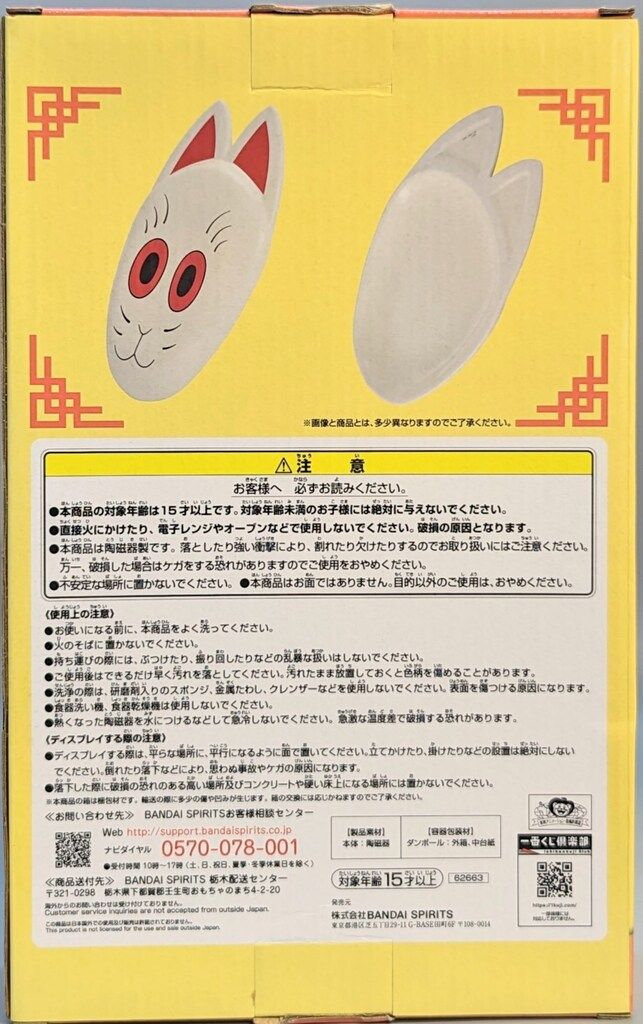 ※画像と商品とは、多少異なりますのでご了承ください。
⚠注意
お客様へ 必ずお読みください。
●本商品の対象年齢は15才以上です。対象年齢未満のお子様には絶対に与えないでください。
●直接火にかけたり、電子レンジやオーブンなどで使用しないでください。破損の原因となります。
●本商品は陶磁器製です。落としたり強い衝撃により、割れたり欠けたりするのでお取り扱いにはご注意ください。
万一、破損した場合はケガをする恐れがありますのでご使用をおやめください。
●不安定な場所に置かないでください。●本商品はお面ではありません。目的以外のご使用は、おやめください。
〈使用上の注意〉
●お使いになる前に、本商品をよく洗ってください。
●火のそばに置かないでください。
●持ち運びの際には、ぶつけたり、振り回したりなどの乱暴な扱いはしないでください。
●ご使用後はできるだけ早く汚れを落としてください。汚れたまま放置しておくと色柄を傷めることがあります。
●洗浄の際は、研磨剤入りのスポンジ、金属たわし、クレンザーなどを使用しないでください。表面を傷つける原因になります。
●食器洗い機、食器乾燥機は使用しないでください。
●熱くなった陶磁器を水につけるなどして急冷しないでください。急激な温度差で破損する恐れがあります。
〈ディスプレイする際の注意〉
●ディスプレイする際は、平らな場所に、平行になるように面で置いてください。立てかけたり、掛けたりなどの設置は絶対にしない
でください。倒れたり落下などにより、思わぬ事故やケガの原因になります。
●落下した際に破損の恐れのある高い場所及びコンクリートや硬い床上になる場所には置かないでください。
※本商品の箱は梱包材です。輸送の際に多少の傷や凹みが生じます。箱の交換には応じかねますのでご了承ください。
≪お問い合わせ先≫ BANDAI SPIRITSお客様相談センター
Web http://support.bandaispirits.co.jp
ナビダイヤル 0570-078-001
●受付時間 10時〜17時(土、日、祝日、夏季・冬季休業日を除く)
≪商品送付先≫ BANDAI SPIRITS 栃木配送センター
〒321-0298 栃木県下都賀郡壬生町おもちゃのまち4-2-20
海外からのお問い合わせは受け付けておりません。
Customer service inquiries are not accepted from outside Japan.
この商品は日本国外での使用及び販売は許諾されておりません。
This product is not licensed for the use and sale outside Japan.
【製品素材】
本体：陶磁器
【容器包装材】
ダンボール：外箱、中台紙
対象年齢15才以上
62663
発売元
株式会社BANDAI SPIRITS
東京都港区芝五丁目29-11 G-BASE田町6F 〒108-0014
一番くじ倶楽部
https://1kuji.com/